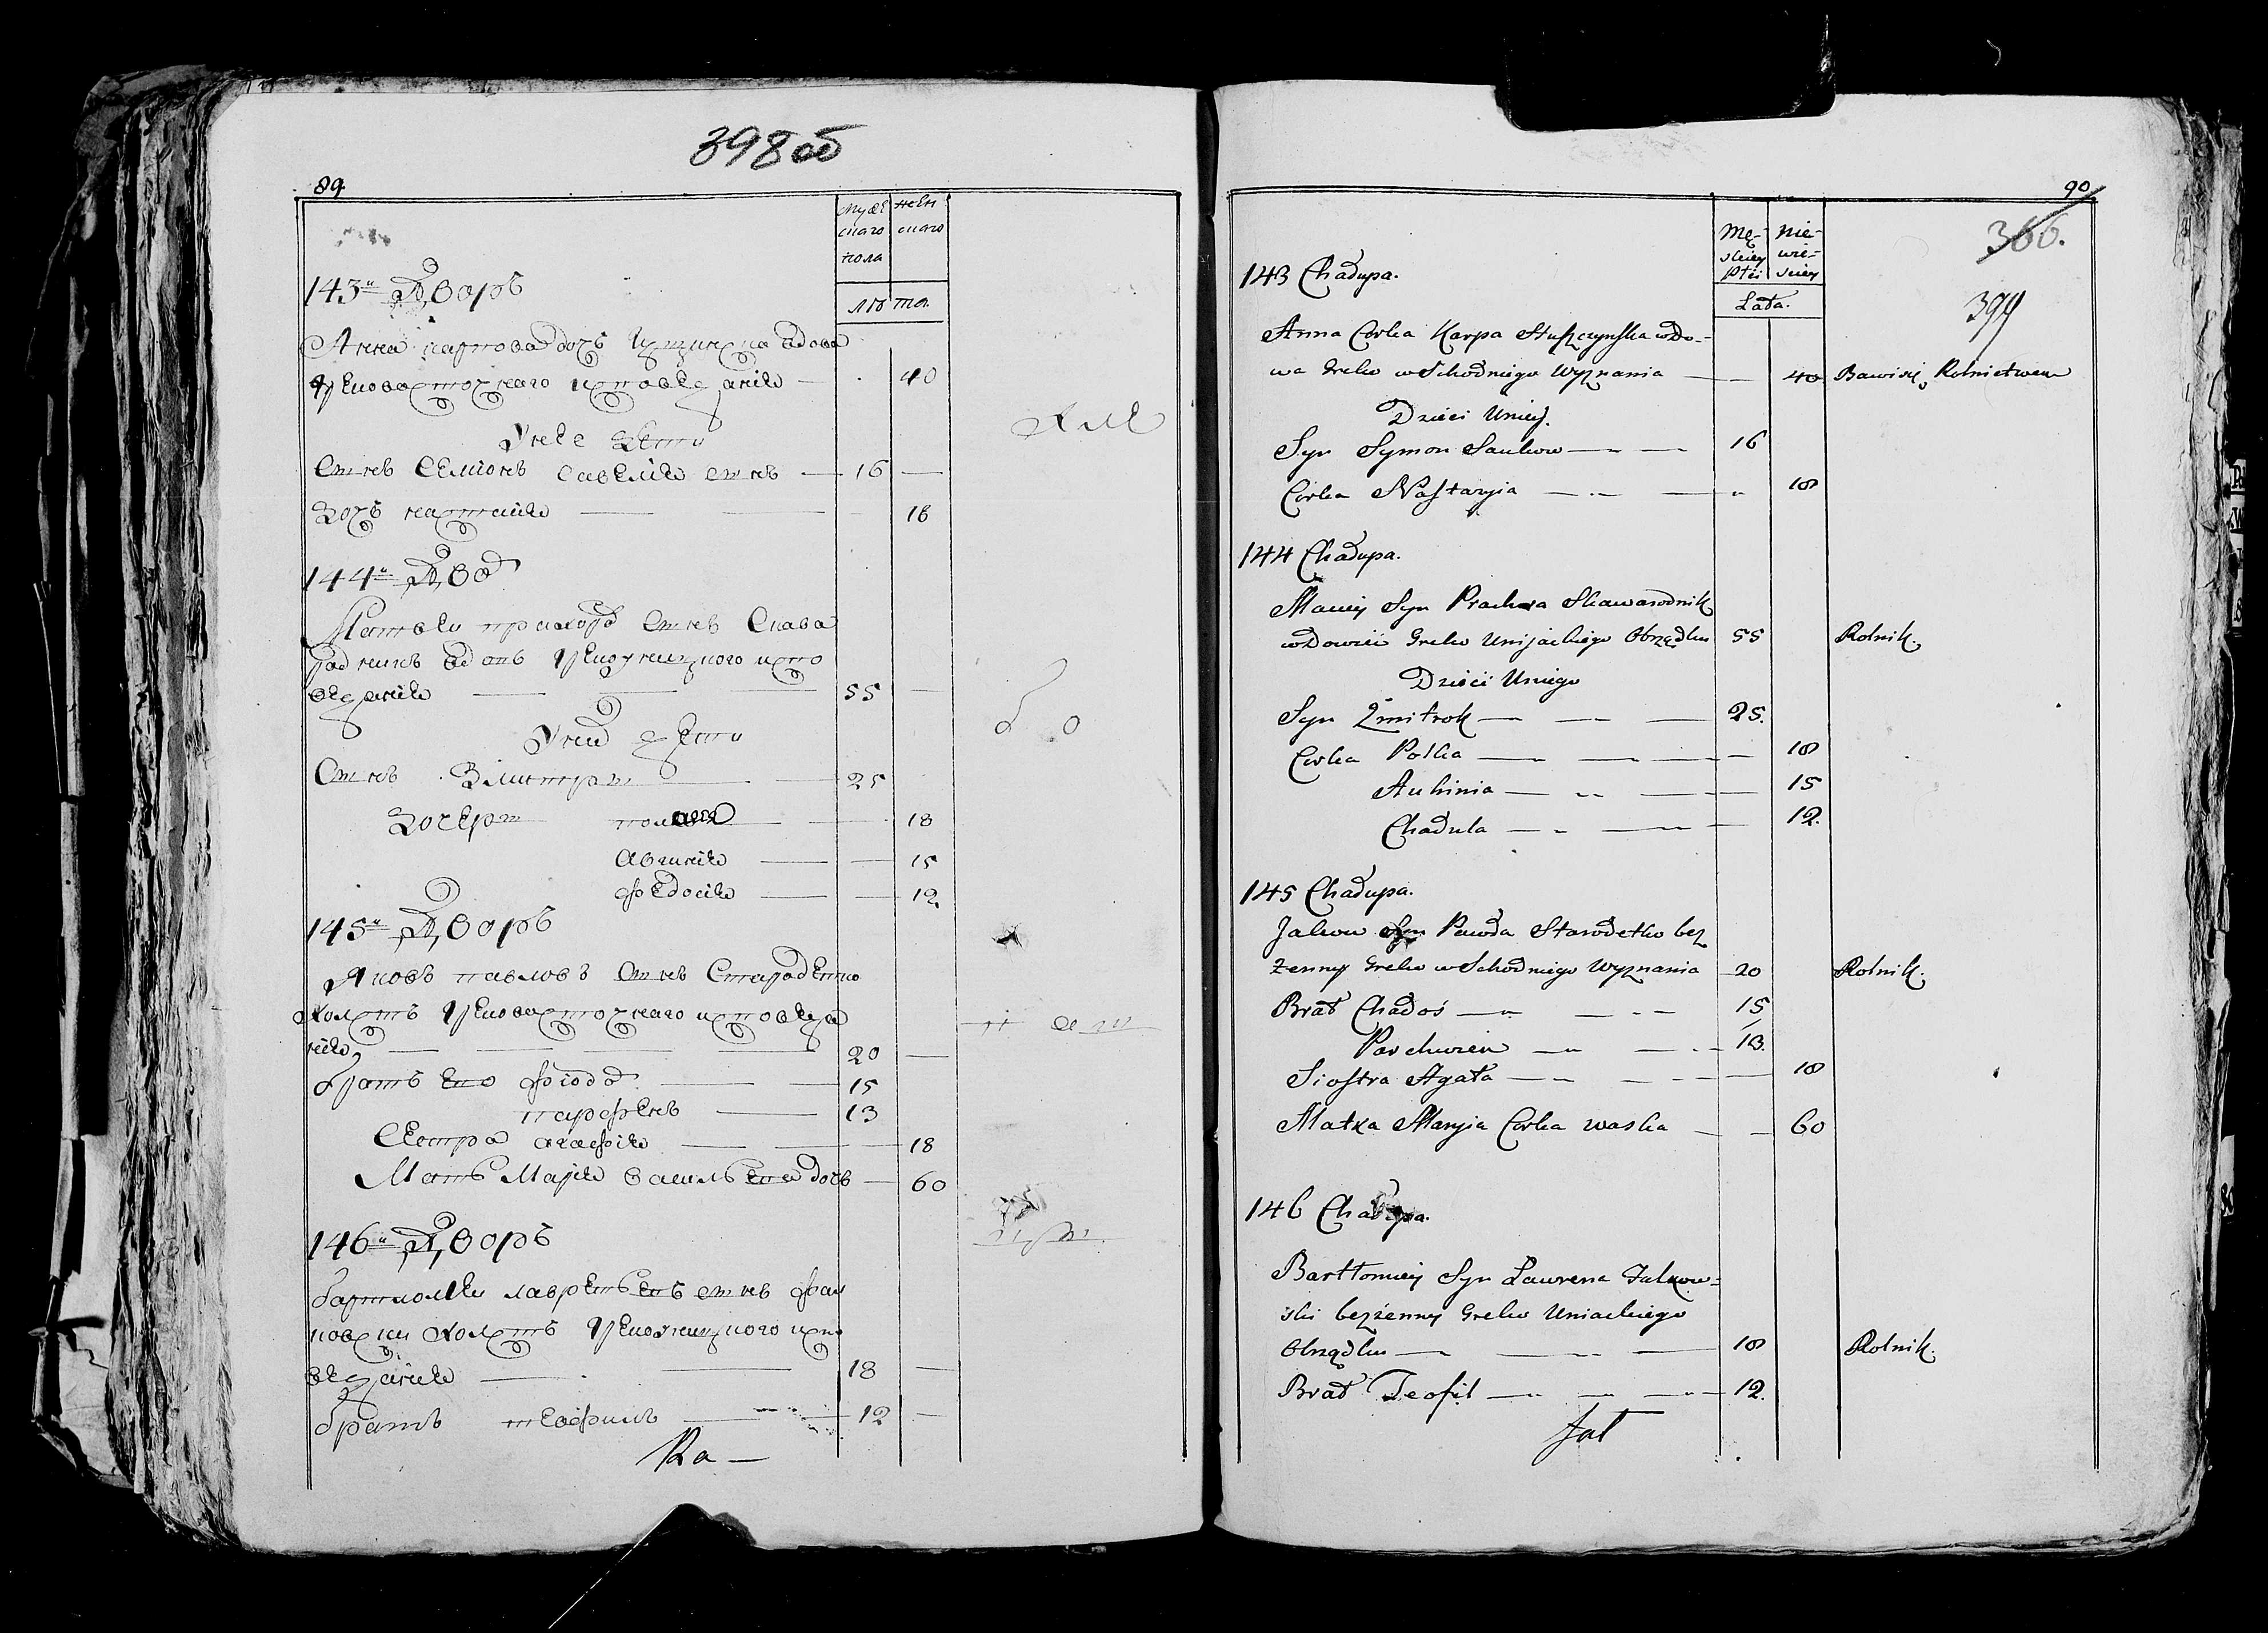 398 об
89.
Мужескаго пола
женскаго
лѣта
143й Дворъ
Анна карпова дочъ вдова
грековосточнаго исповеданiя — 40
У нее дети
Сынъ Семiонъ Савелiя сынъ — 16 —
Дочъ настасiя — 18
144й Двор
Матвеи прахора Сынъ Скава
радникъ вдовъ грекоуницкого испо
веданiя — 55 —
У него дети
Сынъ Змитрокъ — 25
Дочери полася — 18
Авгинiя — 15
федосiя — 12
145й Дворъ
Яковъ павловъ Сынъ Стародетко
холостъ грековосточнаго исповеда
нiя — 20 —
братъ его фiодоръ — 15
парфенъ — 13
Сестра агафiя — 18
Мать Марiя васильева дочъ — 60
146й Дворъ
бартломеи лаврентьевъ сынъ фал
ковски холостъ грекоуницкого испо
веданiя — 18 —
братъ теофилъ — 12 —
Ка —
90
366.
399
Mę-
skiey
płci
nie-
wie-
sciey
Lata.
143 Chałupa.
Anna Corka Karpa wdo-
wa Greko wschodniego Wyznania — 40 Bawi się Rolnictwem
Dzieci Uniey.
Syn Symon Saukow — 16
Corka Nastazyia — 18
144 Chałupa.
Maciey Syn Prachora Skawarodnik
wdowiec Greko Unijackiego Obrządku 55 Rolnik.
Dzieci Uniego
Syn Zmitrok — 25.
Corka Polka — 18
Auhinia — 15
Chadula — 12.
145 Chałupa.
Jakow Syn Pawła Starodetko bez
żenny Greko wschodniego Wyznania 20 Rolnik.
Brat Chadoś — 15
Parchwien — 13.
Siostra Agata — 18
Matka Maryia Corka waska — 60
146 Chałupa.
Bartłomiey Syn Laurena Falkow-
ski bezżenny Greko Uniackiego
Obrządku — 18 Rolnik.
Brat Teofil — 12.